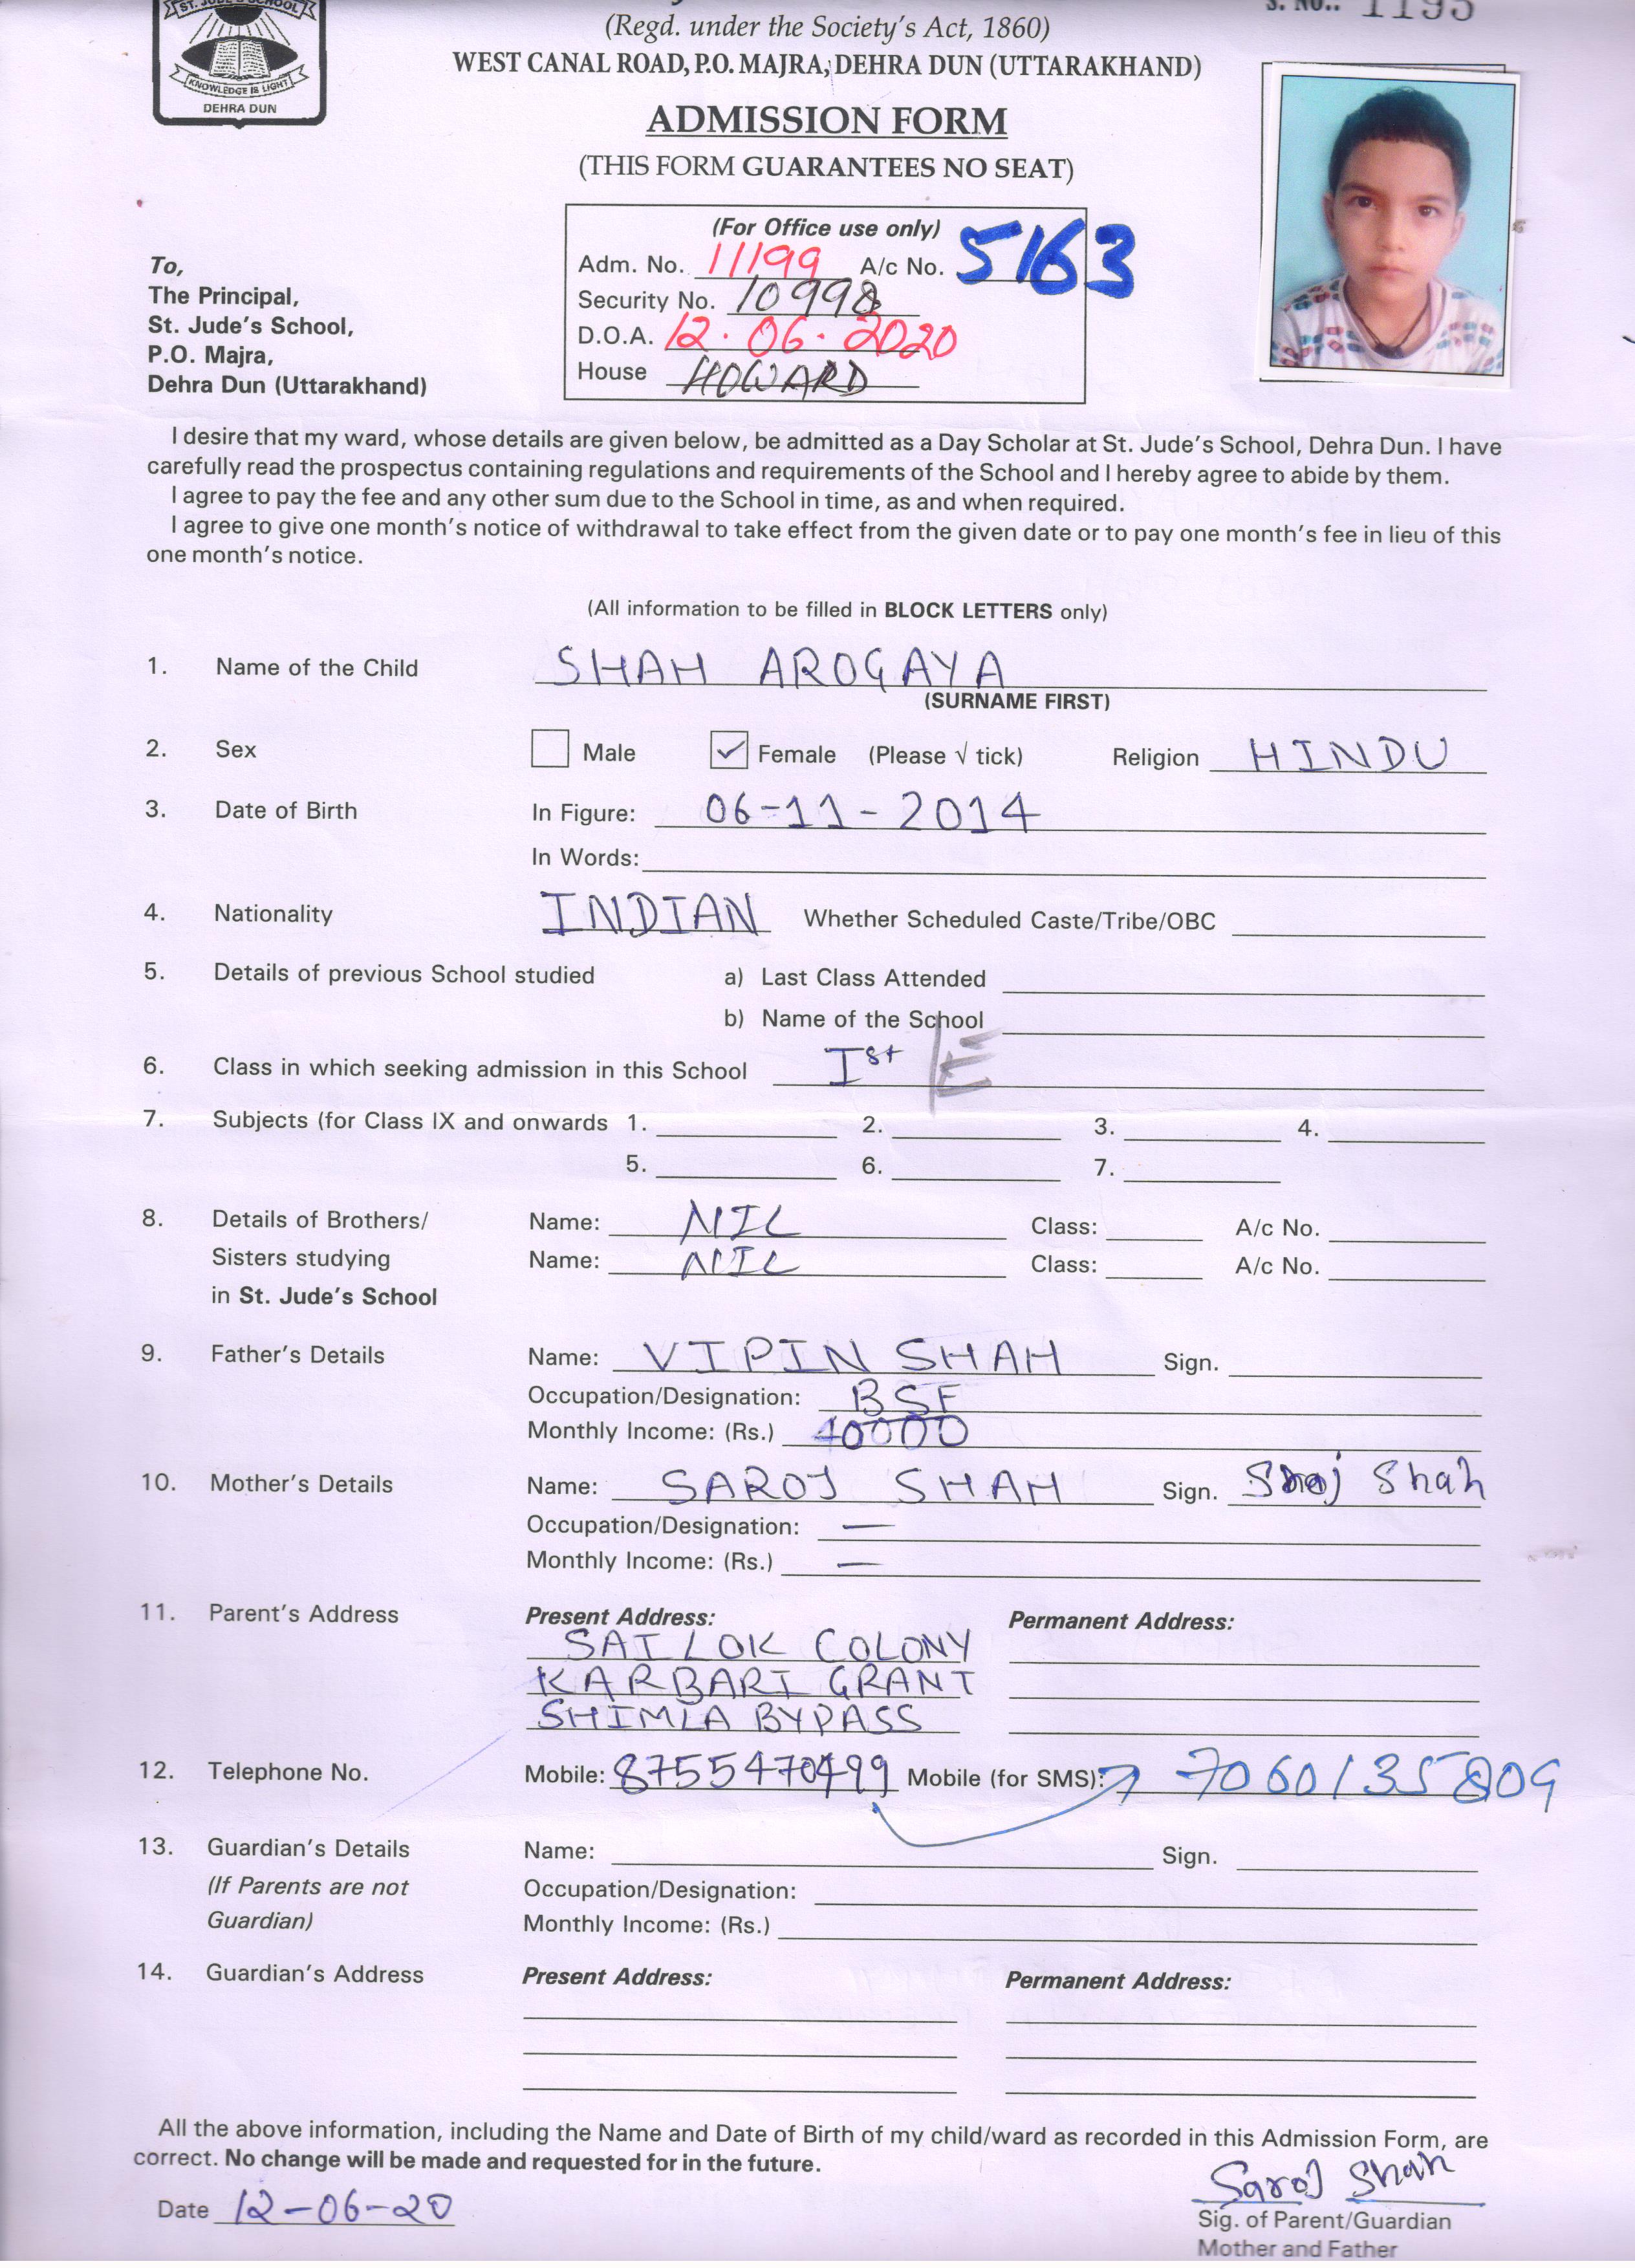 ST. JUDE'S SCHOOL
KNOWLEDGE IS LIGHT
DEHRA DUN
S. NO.: 1195
(Regd. under the Society's Act, 1860)
WEST CANAL ROAD, P.O. MAJRA, DEHRA DUN (UTTARAKHAND)
ADMISSION FORM
(THIS FORM GUARANTEES NO SEAT)
(For Office use only)
Adm. No. 11199 A/c No. 5163
Security No. 10998
D.O.A. 12.06.2020
House HOWARD
To,
The Principal,
St. Jude's School,
P.O. Majra,
Dehra Dun (Uttarakhand)
I desire that my ward, whose details are given below, be admitted as a Day Scholar at St. Jude's School, Dehra Dun. I have
carefully read the prospectus containing regulations and requirements of the School and I hereby agree to abide by them.
I agree to pay the fee and any other sum due to the School in time, as and when required.
I agree to give one month's notice of withdrawal to take effect from the given date or to pay one month's fee in lieu of this
one month's notice.
(All information to be filled in BLOCK LETTERS only)
1. Name of the Child SHAH AROGAYA
(SURNAME FIRST)
2. Sex Male ✓ Female (Please √ tick) Religion HINDU
3. Date of Birth In Figure: 06-11-2014
In Words:
4. Nationality INDIAN Whether Scheduled Caste/Tribe/OBC
5. Details of previous School studied a) Last Class Attended
b) Name of the School
6. Class in which seeking admission in this School Ist E
7. Subjects (for Class IX and onwards 1. 2. 3. 4.
5. 6. 7.
8. Details of Brothers/ Name: NIL Class: A/c No.
Sisters studying Name: NIL Class: A/c No.
in St. Jude's School
9. Father's Details Name: VIPIN SHAH Sign.
Occupation/Designation: BSF
Monthly Income: (Rs.) 40000
10. Mother's Details Name: SAROJ SHAH Sign. Saroj Shah
Occupation/Designation: —
Monthly Income: (Rs.) —
11. Parent's Address Present Address: Permanent Address:
SAI LOK COLONY
KARBARI GRANT
SHIMLA BYPASS
12. Telephone No. Mobile: 8755470499 Mobile (for SMS): 7060135809
13. Guardian's Details Name: Sign.
(If Parents are not Occupation/Designation:
Guardian) Monthly Income: (Rs.)
14. Guardian's Address Present Address: Permanent Address:
All the above information, including the Name and Date of Birth of my child/ward as recorded in this Admission Form, are
correct. No change will be made and requested for in the future.
Saroj Shah
Date 12-06-20
Sig. of Parent/Guardian
Mother and Father